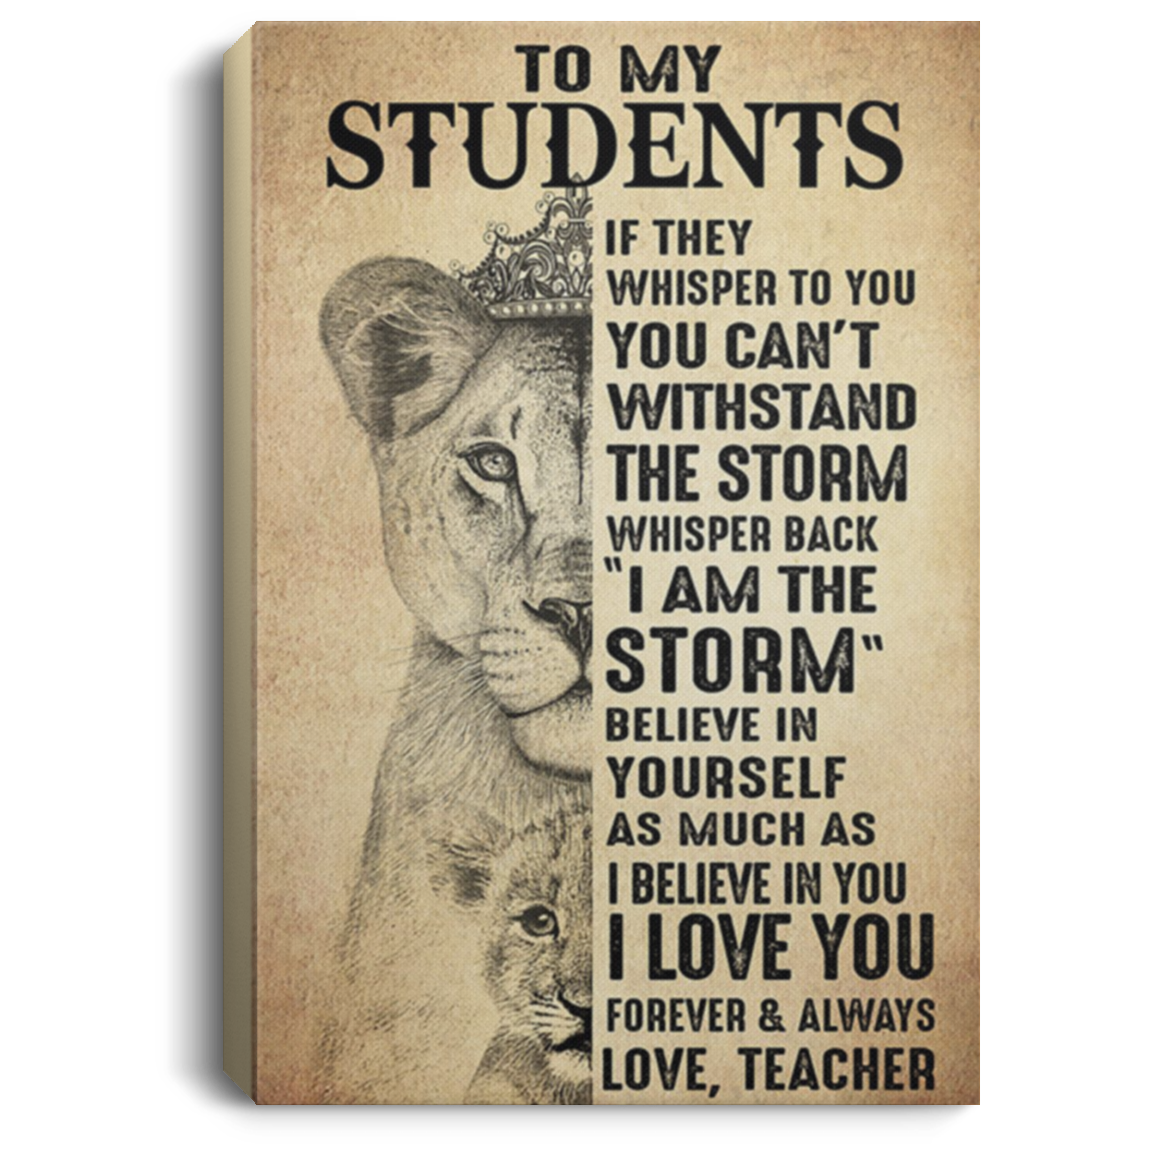 TO MY
STUDENTS
IF THEY
WHISPER TO YOU
YOU CAN'T
WITHSTAND
THE STORM
WHISPER BACK
"I AM THE
STORM"
BELIEVE IN
YOURSELF
AS MUCH AS
I BELIEVE IN YOU
I LOVE YOU
FOREVER & ALWAYS
LOVE, TEACHER